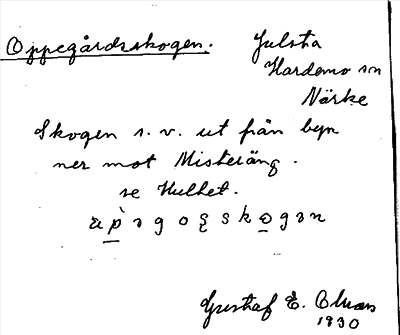 Oppegårdsskogen.
Julsta
Hardemo sn
Närke
Skogen s. v. ut från byn
ner mot Misteräng.
se Hulhet.
Gustaf E.
1930